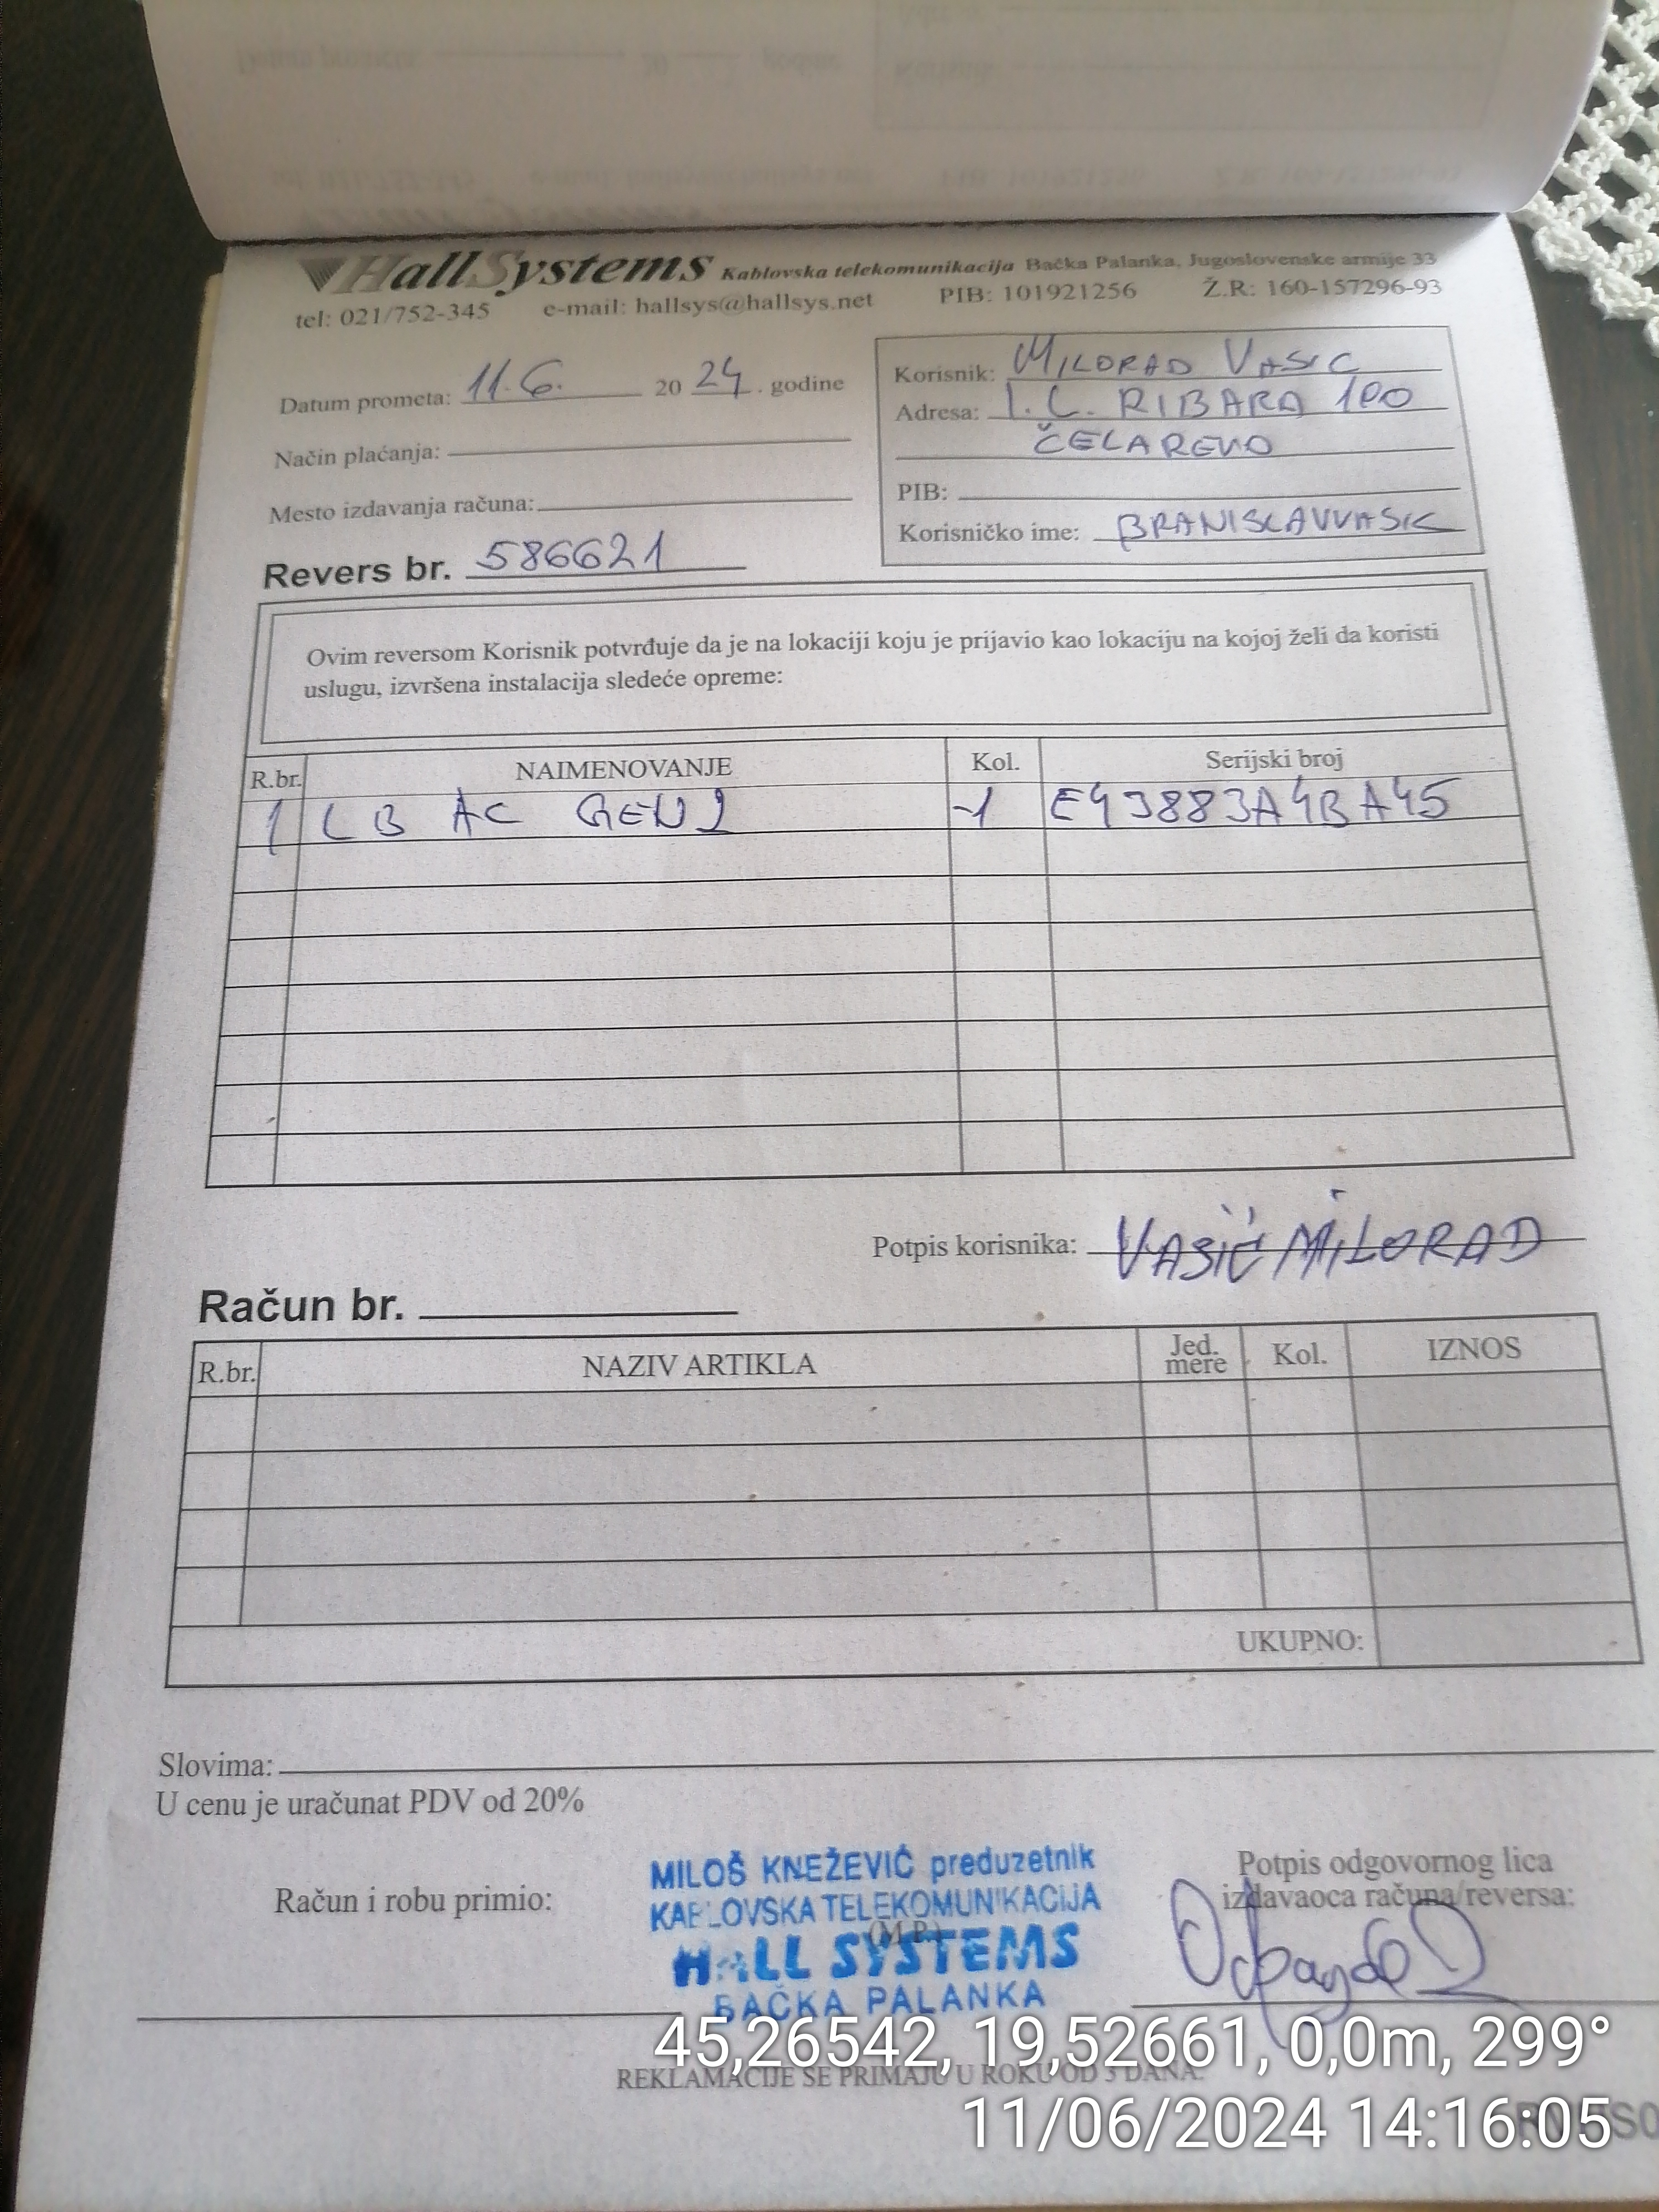 HallSystems Kablovska telekomunikacija Bačka Palanka, Jugoslovenske armije 33
tel: 021/752-345 e-mail: hallsys@hallsys.net PIB: 101921256 Ž.R: 160-157296-93
Datum prometa: 11.6. 20 24. godine
Način plaćanja:
Mesto izdavanja računa:
Revers br. 586621
Korisnik: MILORAD VASIC
Adresa: I. L. RIBARA 100
ČELAREVO
PIB:
Korisničko ime: BRANISLAVVASIC
Ovim reversom Korisnik potvrđuje da je na lokaciji koju je prijavio kao lokaciju na kojoj želi da koristi
uslugu, izvršena instalacija sledeće opreme:
R.br. NAIMENOVANJE Kol. Serijski broj
1 LB AC GEN2 1 E43883A4BA45
Potpis korisnika: VASIĆ MILORAD
Račun br.
R.br. NAZIV ARTIKLA Jed. mere Kol. IZNOS
UKUPNO:
Slovima:
U cenu je uračunat PDV od 20%
Račun i robu primio:
MILOŠ KNEŽEVIĆ preduzetnik
KABLOVSKA TELEKOMUNIKACIJA
(M.P.)
HALL SYSTEMS
BAČKA PALANKA
Potpis odgovornog lica
izdavaoca računa/reversa:
REKLAMACIJE SE PRIMAJU U ROKU OD 3 DANA.
45,26542, 19,52661, 0,0m, 299°
11/06/2024 14:16:05